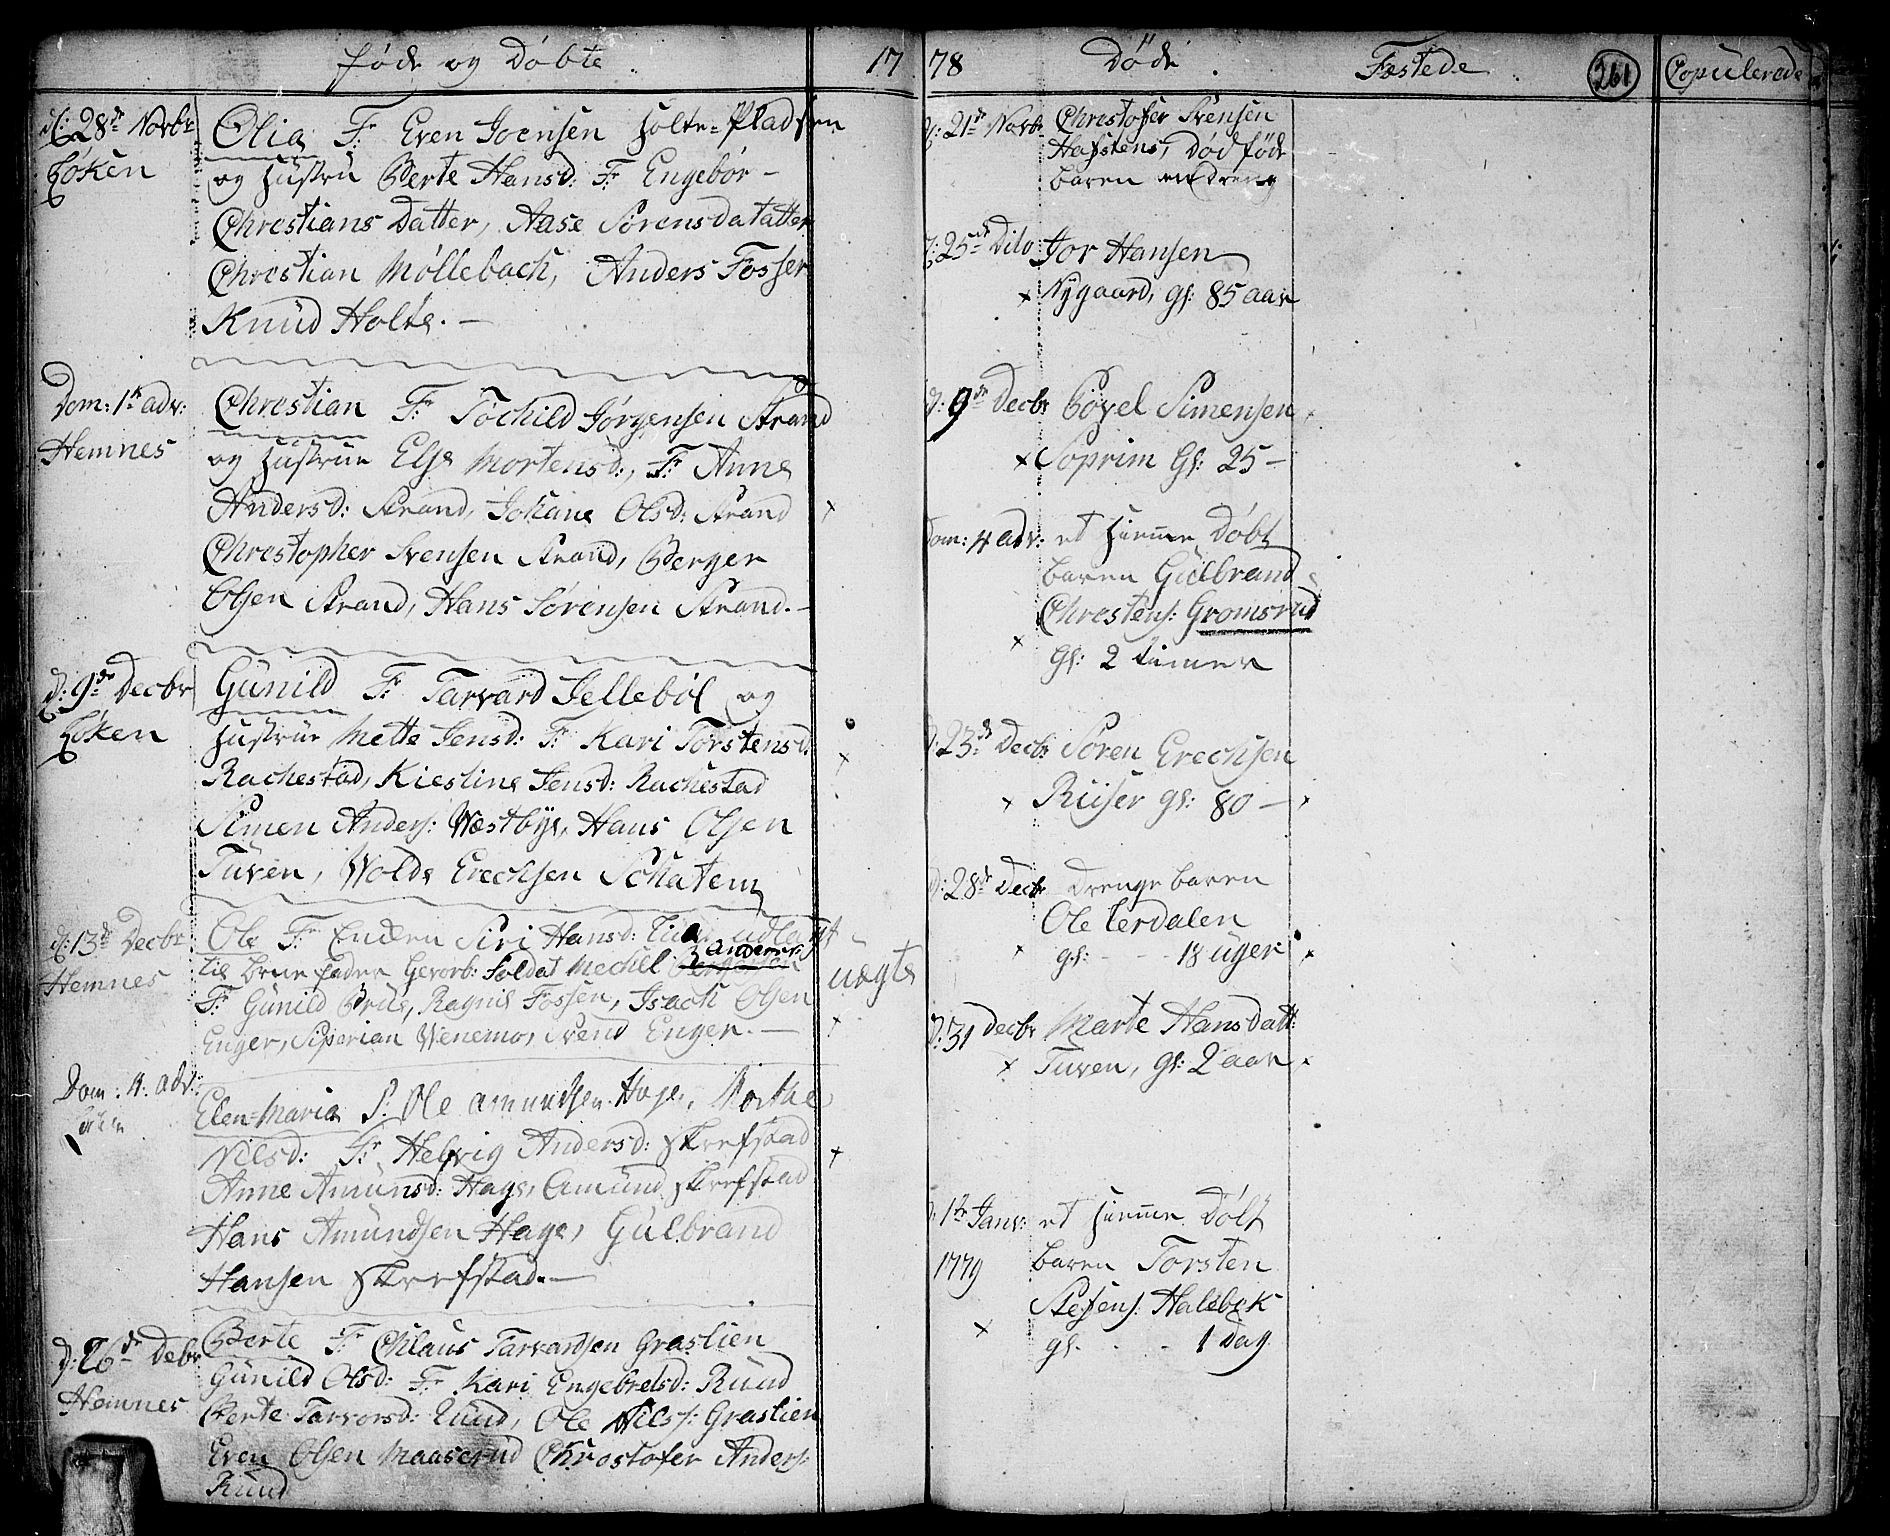 føde og Døbte 17
d: 28de Novbr
Løken
Olia F: Even Joensen Holte=Pladsen
og Hustru Berte Hansd: F: Engebør-
Christians Datter, Aase Sørensdatatter
Christian Møllebach, Anders Fosser
Knud Holte. —
Dom: 1ste adv:
Hemnes
Christian F: Tochild Jørgensen Strand
og Hustrue Else Mortensd:, F: Anne
Andersd: Strand, Johane Olsd: Strand
Christopher Svensen Strand, Berger
Olsen Strand, Hans Sørensen Strand. —
d: 9de Decbr
Løken
Gunild F: Tarvard Jellebøl og
Hustrue Mette Jensd: F: Kari Torstensd:
Rachestad, Kiestine Jensd: Rachestad
Simen Anders: Westbye, Hans Olsen
Tuven, Wolde Erechsen Schatem
d: 13de Decbr
Hemnes
Ole F: Siri Hansd: udlagt
til barne fader Gevorb: Soldat Mechel Anders:
uægte
F: Gunild Brue, Ragnil Fossen, Isach Olsen
Enger, Siperian Wenemo, Svend Enger. —
Dom: 4. adv:
Elen=Maria Ole Amundsen Hage, Marthe
Nilsd: F: Helvig Andersd: Skrefstad
Anne Amunsd: Hage, Amund Skrefstad
Hans Amundsen Hage, Gulbrand
Hansen Skrefstad. —
d: 26de Debr
Hemnes
Berte F: Chlaus Tarvardsen Grastien
Gunild Olsd: F: Kari Engebretsd: Ruud
Berte Tarvorsd: Ruud, Ole Nils: Grastien
Even Olsen Maaserud Christofer Anders:
Ruud
78 Døde Festede 261 Copulerede
d: 21de Novbr Christofer Svensen
Hafstens, Død føde
baren en dreng
d: 25de Dito Jor Hansen
Nygaard, gl: 85 aar
d: 9de Decbr Bovel Simensen
Soprim Gl: 25 —
Dom: 4 adv: et Hiemme Døbt
baren Gulbrand
Christens: Gromsrud
Gl: 2 timer
d: 23de Decbr Søren Erechsen
Riiser gl: 80 —
d: 28de Decbr Drenge baren
Ole Lerdalen
gl: - - 18 uger
d: 31 Decbr Marte Hansdatt:
Tuven, gl: 2 aar
d: 1te Janv: et Hiemme Døbt
1779 baren Torsten
Stefens: Halsbek
gl. . . - 1 Dag